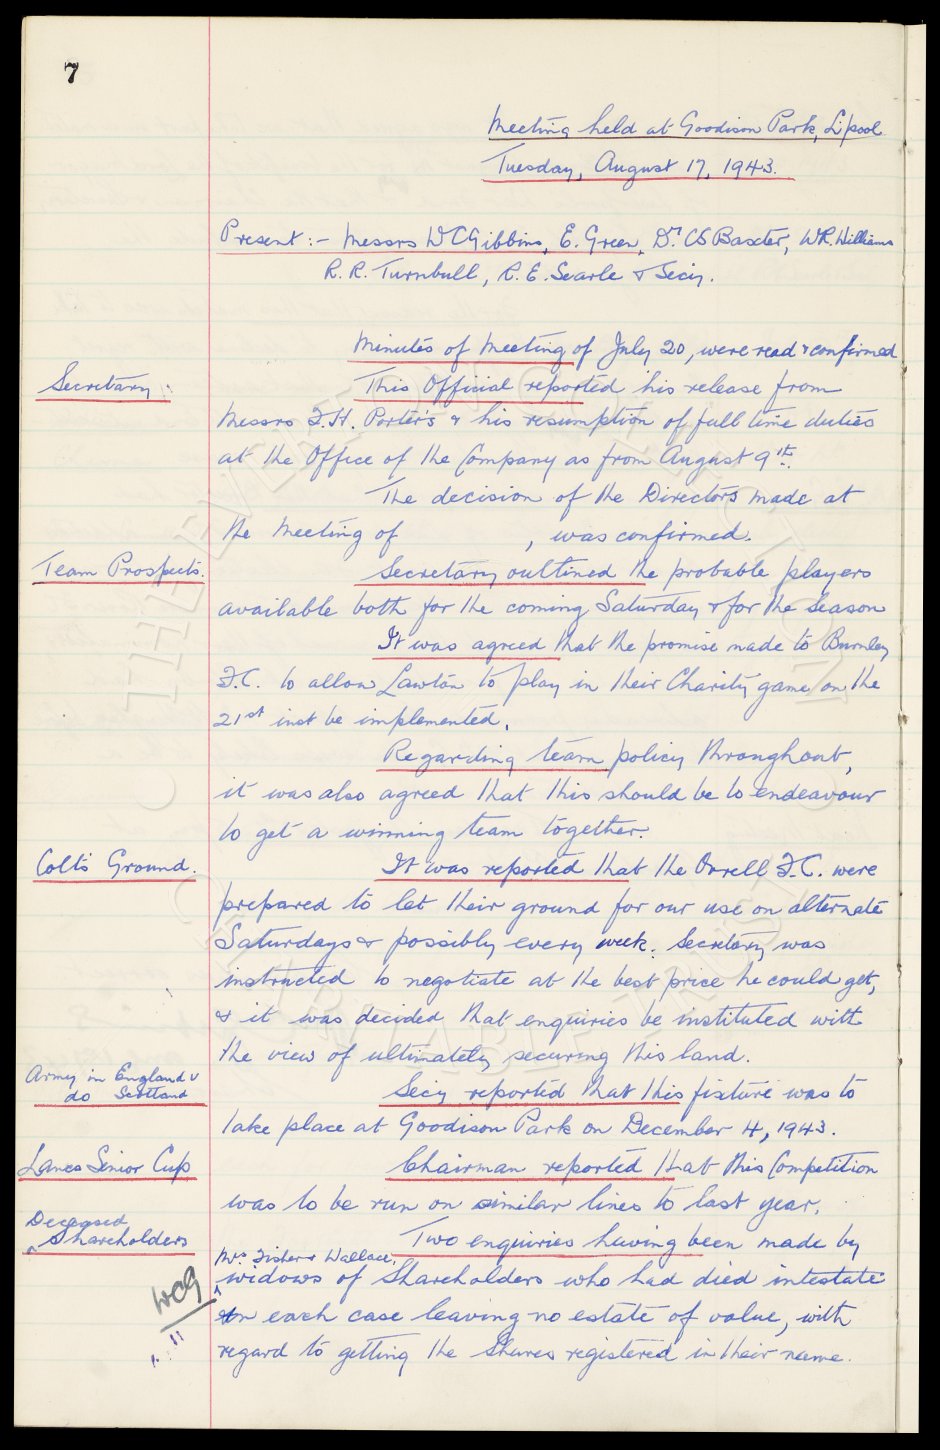 7
Meeting held at Goodison Park, L'pool
Tuesday, August 17, 1943.
Present :- Messrs W C Gibbins, E. Green, Dr. C S Baxter, W.R. Williams
R. R. Turnbull, R. E. Searle & Secy.
Minutes of Meeting of July 20, were read & confirmed
Secretary :
This Official reported his release from
Messrs F. H. Porter's & his resumption of full time duties
at the Office of the Company as from August 9th.
The decision of the Directors made at
the Meeting of , was confirmed.
Team Prospects.
Secretary outlined the probable players
available both for the coming Saturday & for the season
It was agreed that the promise made to Burnley
F.C. to allow Lawton to play in their Charity game on the
21st inst be implemented.
Regarding team policy throughout,
it was also agreed that this should be to endeavour
to get a winning team together.
Colts Ground.
It was reported that the Orrell F.C. were
prepared to let their ground for our use on alternate
Saturdays & possibly every week. Secretary was
instructed to negotiate at the best price he could get,
& it was decided that enquiries be instituted with
the view of ultimately securing this land.
Army in England v
do Scotland
Secy reported that this fixture was to
take place at Goodison Park on December 4, 1943.
Lancs Senior Cup
Chairman reported that this Competition
was to be run on similar lines to last year.
Deceased
Shareholders
Two enquiries having been made by
Mrs Fisher & Wallace,
widows of Shareholders who had died intestate
WCG
in each case leaving no estate of value, with
regard to getting the Shares registered in their name.
THE EVERTON COLLECTION
CHARITABLE TRUST